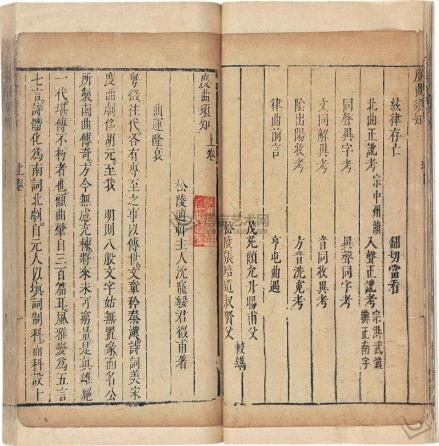 絃律存亡　翻切當看
北曲正訛考 宗中州韻　入聲正訛考 宗洪武韻 兼正南字
同聲異字考　異聲同字考
文同解異考　音同收異考
陰出陽收考　方音洗冤考
律曲前言　亨屯曲遇
茂苑顧允升
松陵張培道叔賢父
度曲須知　上卷
松陵適軒主人沈寵綏君徵甫著
曲運隆衰
粵徵徃代各有專至之事以傳世文章矜秦漢詩詞美宋
唐曲劇侈胡元至我　明則八股文字姑無置喙而名公
所製南曲傳奇方今無慮充棟將來未可窮量是真雄絕
一代堪傳不朽者也顧曲肇自三百篇耳風雅變為五言
七言詩體化為南詞北劇自元人以填詞制科而科設十